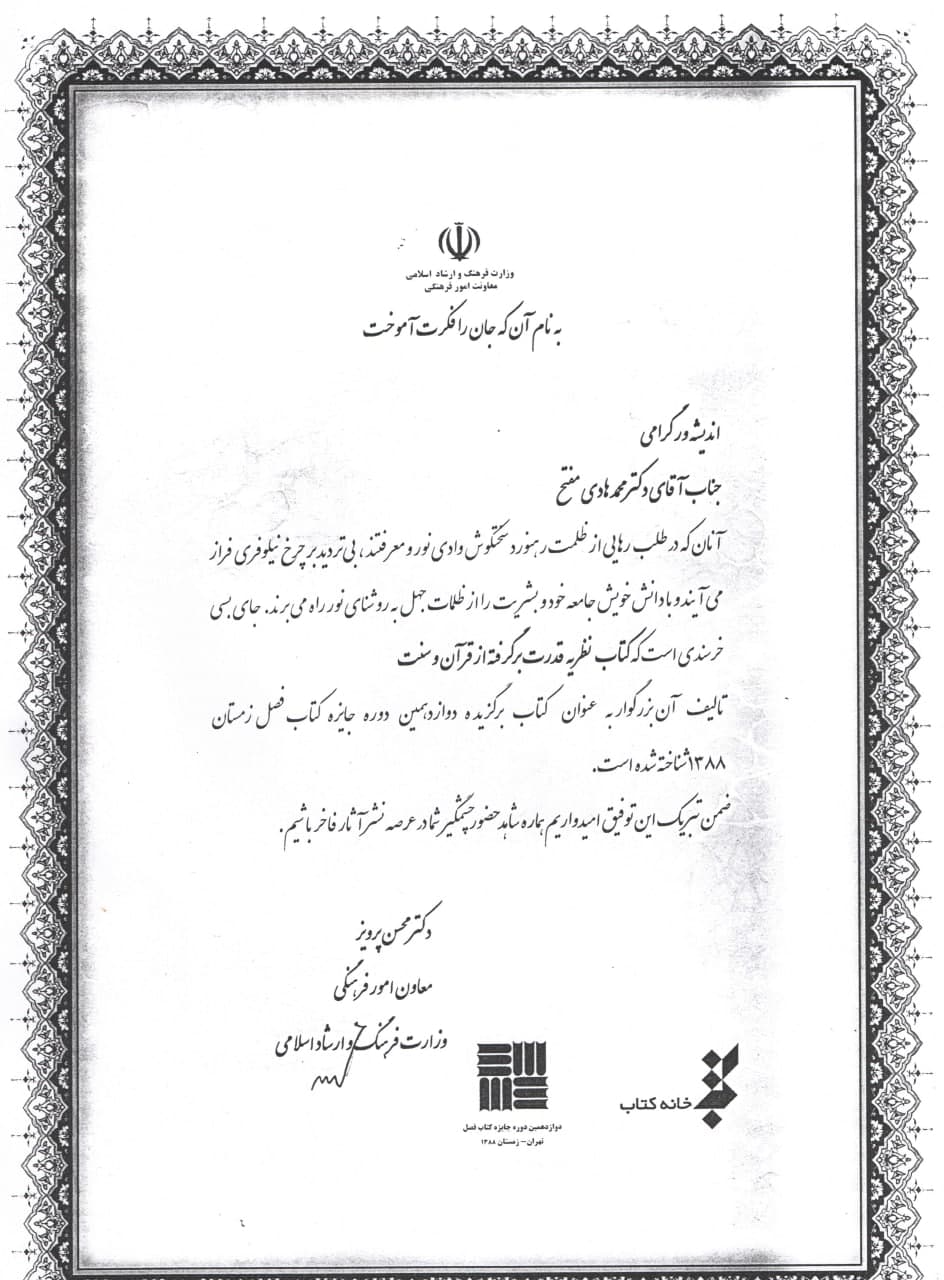 وزارت فرهنگ و ارشاد اسلامی
معاونت امور فرهنگی
به نام آن که جان را فکرت آموخت
اندیشه ور گرامی
جناب آقای دکتر محمد هادی مفتح
آنان که در طلب رهایی از ظلمت رهنورد سختکوش وادی نور و معرفتند، بی تردید بر چرخ نیلوفری فراز
می آیند و با دانش خویش جامعه خود و بشریت را از ظلمات جهل به روشنای نور راه می برند. جای بسی
خرسندی است که کتاب نظریه قدرت برگرفته از قرآن و سنت
تالیف آن بزرگوار به عنوان کتاب برگزیده دوازدهمین دوره جایزه کتاب فصل زمستان
۱۳۸۸ شناخته شده است.
ضمن تبریک این توفیق امیدواریم هماره شاهد حضور چشمگیر شما در عرصه نشر آثار فاخر باشیم.
دکتر محسن پرویز
معاون امور فرهنگی
وزارت فرهنگ و ارشاد اسلامی
خانه کتاب
دوازدهمین دوره جایزه کتاب فصل
تهران - زمستان ۱۳۸۸